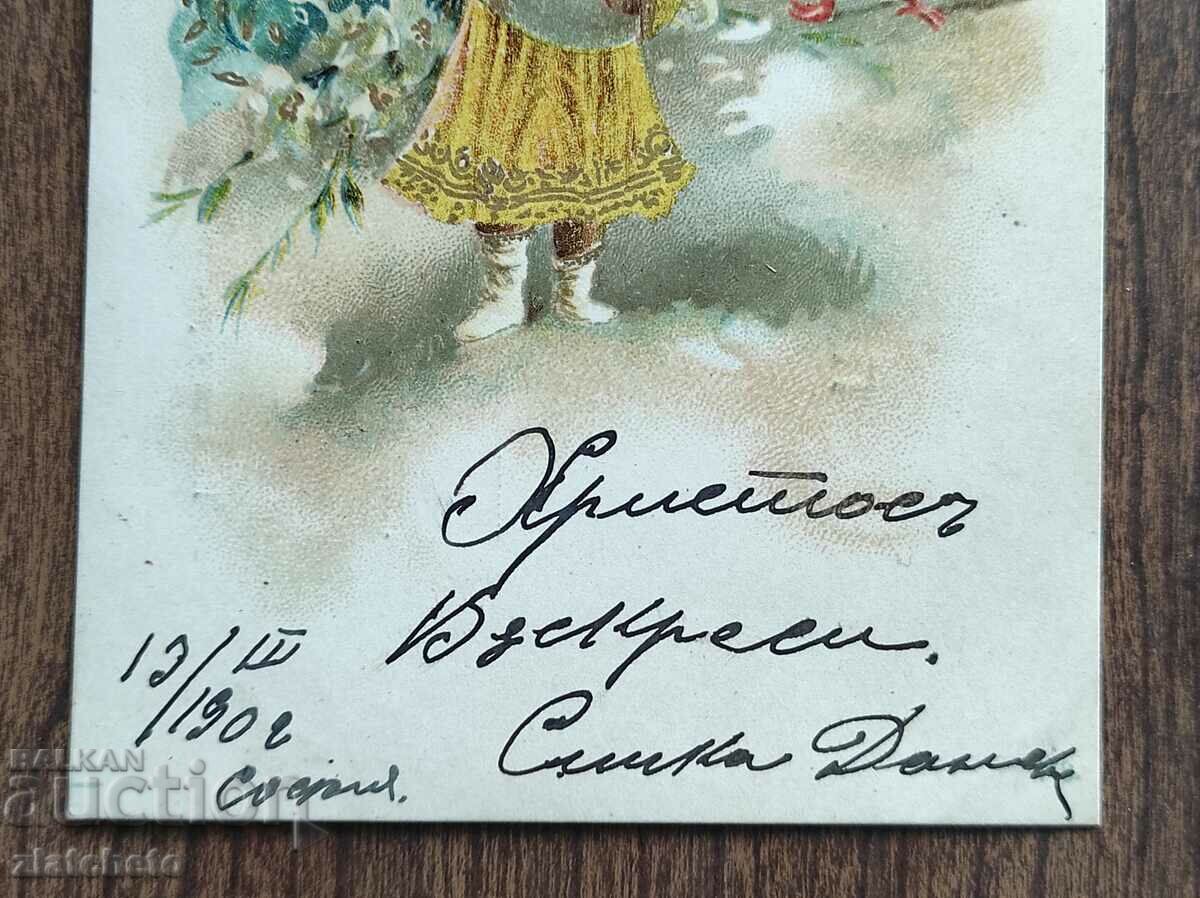 Христосъ
Възкреси.
13/III
1902
София.
BALKAN
auction
zlatcheto